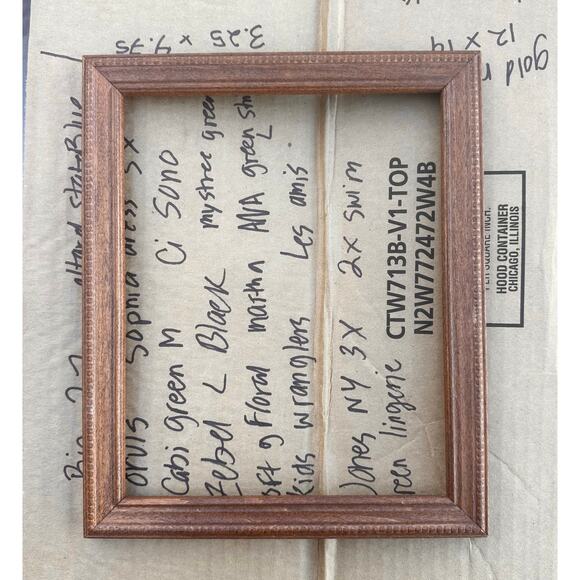 3.25 x 4.75
gold
12 x 14
Bin
Orvis Sophia dress 3x
Cabi green M Ci Sono
Zebel L Black mystree green
9 Floral martha ANA green L
Kids wranglers Les amis
Jones NY 3X 2x swim
reen lingerie
CTW713B-V1-TOP
N2W772472W4B
HOOD CONTAINER
CHICAGO, ILLINOIS